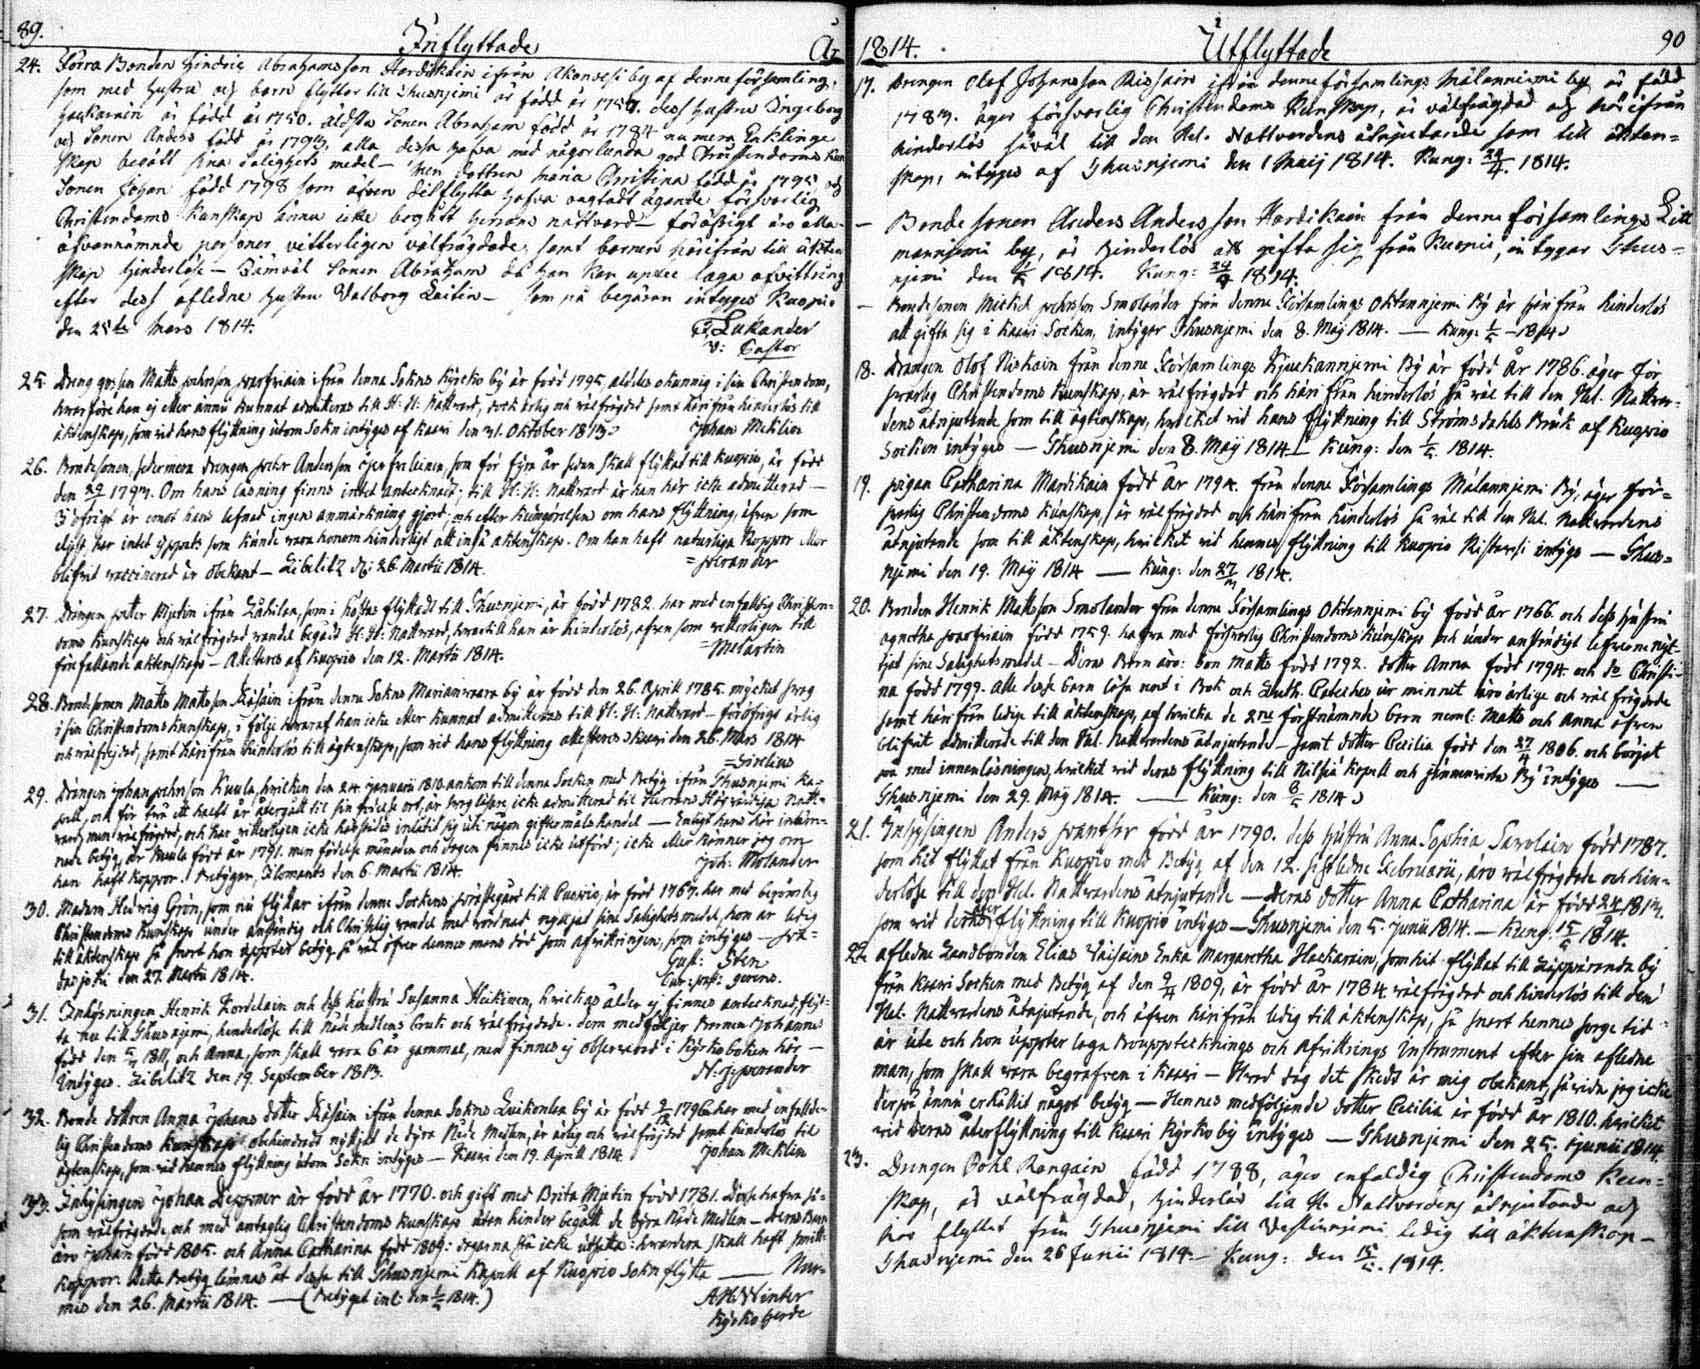 89. Inflyttade År
24. Förra Bonden Hindric Abrahamsson Hardikain ifrån Akonvesi by af denne församling,
som med hustru och barn flyttar till Thusnjemi är född år 1757. dess hustru Ingeborg
Haekarain är född år 1750. äldsta Sonen Abraham född år 1784 numera Enklinge
och Sonen Anders född år 1794, alla dessa hafva med någorlunda god Christendoms kun
skap begått sina Salighets medel — Men Dottren Maria Christina född år 1795 och
Sonen Johan född 1798 som äfven ditflytta hafva agtadt ägande försvarlig
Christendoms kunskap ännu icke begått herrans nattvard — föröfrigt äro alla
ofvannämnde personer vitterligen välfrägdade, samt barnen härifrån till äkten
skap hinderlöse — Såmväl Sonen Abraham då han kan upvise laga afvittring
efter dess afledne hustru Valborg Laitin — som på begäran intygas Kuopio
den 25te Mars 1814.
Lukander
V: Pastor
25. Dreng gossen Matts Johansson ifrån denna Sokns Kyrcko by är född 1795, aldeles okunnig i sin Christendom,
hvarföre han ej eller ännu kunnat admitteras till H. H. Nattvard, dock ärlig och välfrägdad samt härifrån hinderlös till
äktenskap, som vid hans flyttning utom Sokn intygas af Kaavi den 31. Oktober 1813.
Johan Meklin
26. Bondesonen, sedermera drengen Peter Andersson, som för fyra år sedan skall flyttat till Kuopio, är född
den 29 1793. Om hans läsning finns intet antecknadt; till H: H: Nattvard är han här icke admitterad —
I öfrigt är emot hans lefnad ingen anmärkning gjord; och efter kungörelsen om hans flyttning, äfven som
eljest har intet yppats som kunde vara honom hinderligt att ingå äktenskap. Om han haft naturliga Koppor eller
blifvit vaccinerad är obekant — Libelitz d: 26. Martii 1814.
27. Drängen Petter Mustin ifrån, som i höstas flyttade till Thusnjemi, är född 1782. har med enfaldig Christen-
doms kunskap och välfrägdad vandel begådt H: H: Nattvard, hvartill han är hinderlös, äfven som vetterligen till
förefallande äktenskap — Attesteras af Kuopio den 12. Martii 1814.
28. Bondesonen Matts Mattsson Räsäin ifrån denne Sokns Marianvaara by är född den 26. Aprill 1785. mycket svag
i sin Christendoms kunskap, i följe hvaraf han icke eller kunnat admitteras till H: H: Nattvard — föröfrigt ärlig
och välfrejdad, samt härifrån hinderlös till ägtenskap, som vid hans flyttning attesteras Kaavi den 26. Mars 1814
29. Drängen Johan Johnsson Kuula, hvilken den 24. Januarii 1810 ankom till denna Socken med Betyg ifrån Thusnjemi Ka-
pell, och för ett halft år återgått til sin födelse ort, är svag läsare icke admitterad til Herrans Högvärdiga Natt-
vard, men välfrägdad, och har vitterligen icke härstädes inlåtit sig uti någon giftermåls handel — Enligt hans hår inläm-
nade betyg är Kuula född år 1791. men födelse månaden och dagen finnes icke utförd; icke eller känner jag om
han haft koppor. Betygar, Ilomants den 6. Martii 1814.
Joh: Molander
30. Madam Hedvig Grön, som nu flyttar ifrån denne Sockens Prästegård till Kuopio, är född 1767. har med begvämlig
Christendoms kunskap under anständig och Christelig vandel med vördnad nyttjat sine Salighetsmedel, hon är ledig
till äktenskap så snart hon uppvist betyg så väl öfver dennes mans död som afvittringen, som intygas
den 27. Martii 1814.
Gust: Sten
31. Inhysningen Henrik Kordelain och dess hustru Susanna Heikinen, hvilkas ålder ej finnes antecknad, flyt-
ta nu till Thusnjemi, hinderlöse till Nåde medlens bruk och välfrägdade. Dem medföljer Barnen Johannes
född den 5 1811, och Anna, som skall vara 6 år gammal, men finnes ej observerad i Kyrkoboken här —
Intygas. Libelitz den 19. September 1813.
32. Bonde dottren Anna Johans dotter Räsäin ifrån denna Sokns Luikonlax by är född 1796 har med enfalde-
lig Christendoms kunskap obehindradt nyttjat de dyra Nåde Medlen, är ärlig och välfräjdad samt hinderlös til
ägtenskap, som vid hennes flyttning utom Sokn intygas — Kaavi den 19. Aprill 1814
Johan Meklin
33. Inhysingen Johan Deppner är född år 1770. och gift med Brita Mustin född 1781. Desse hafva så-
som välfrägdade och med antaglig Christendoms kunskap utan hinder begått de dyra Nåde Medlen — deras Barn
äro Johan född 1805. och Anna Catharina född 1809: dagarna stå icke utsatta: hvardera skall haft smitt-
koppor. Detta Betyg lemnas at desse till Thusnjemi Kapell af Kuopio Sokn flytta — Nur-
mis den 26. Martii 1814. — (Betyget inl: den 1814.)
A H Winter
Kyrko herde
1814. Utflyttade 90
17. Drengen Olof Johansson Rissain ifrån denne församlings Målannjemi by är född
1783. äger försvarlig Christendoms Kunskap, är välfrägdad och härifrån
hinderlös såväl till den Hel. Nattvardens åtnjutande som till äkten-
skap, intygas af Thusnjemi den 1 Maij 1814. Kung: 24/4. 1814.
— Bonde Sonen Anders Andersson Hardikain från denne församlings Litt
manniemi by, är hinderlös att gifta sig från Kuopio, intygar Thus-
njemi den 1814. Kung: 24/4 1814.
— Bondesonen Mickel Johnsson Smolander från denne Församlings Oktannjemi By är härifrån hinderlös
att gifta sig i Kaavi Socken, intygar Thusnjemi den 8. Maij 1814. — Kung: 1/5 — 1814.
18. Drängen Olof Niskain från denne Församlings Kjuukannjemi By är född År 1786. äger för
svarlig Christendoms Kunskap, är välfrägdad och härifrån hinderlös så väl till den Hel. Nattvar-
dens åtnjutande som till ägtenskap, hvilket vid hans flyttning till Strömsdahls Bruk af Kuopio
Socken intygas — Thusnjemi den 8. Maij 1814. — Kung: den 1/5 1814.
19. Pigan Catharina Mardikain född år 1794. från denne Församlings Målannjemi By, äger för-
svarlig Christendoms Kunskap, är välfrägdad och härifrån hinderlös så väl till den Hel. Nattvardens
åtnjutande som till äktenskap, hvilket vid hennes flyttning till Kuopio Ristavesi intygas — Thus-
njemi den 19. Maij 1814 — Kung: den 1814.
20. Bonden Henrik Mattsson Smolander från denne Församlings Oktannjemi by född år 1766. och dess hustru
Agnetha född 1759. hafva med försvarlig Christendoms kunskap och under anständigt lefverne nyt-
tjat sine Salighetsmedel — Deras Barn äro: Son Matts född 1792. dotter Anna född 1794. och do Christi-
na född 1799. alle desse barn läsa nort i Bok och Luth. Cateches ur minnet äro ärlige och väl frägdade
samt härifrån ledige till äktenskap, af hvilka de 2ne förstnämnde barn neml: Matts och Anna äfven
blifvit admitterade till den Hel. Nattvardens åtnjutande — samt dotter Cecilia född den 27 1806. och börjat
på med innanläsningen, hvilket vid deras flyttning till Nilsiä Kapell och By intygas —
Thusnjemi den 29. Maij 1814. — Kung: den 8/5 1814.
21. Inhysingen Anders född år 1790. dess hustru Anna Sophia Savolain född 1787.
som hit flyttat från Kuopio med Betyg af den 12. sistledne Februarii, äro välfrägdade och hin-
derlöse till den Hel. Nattvardens åtnjutande — deras dotter Anna Catharina är född 24 1813.
som vid deras åter flyttning till Kuopio intygas — Thusnjemi den 5. Junii 1814. — Kung. 1814.
22. afledne Landbonden Elias Väisäins Enka Margaretha Haekarain, som hit flyttat till by
från Kaavi Socken med Betyg af den 9 1809, är född år 1784 välfrägdad och hinderlös till den
Hel. Nattvardens åtnjutande, och äfven härifrån ledig till äktenskap, så snart hennes sorge tid
är ute och hon uppter laga Bouppteknings och Afvittrings Instrument efter sin afledne
man, som skall vara begrafven i Kaavi — Hvad dag det skedt är mig obekant, såvida jag icke
derpå ännu erhållit något betyg — Hennes medföljande dotter Cecilia är född år 1810. hvilket
vid deras återflyttning till Kaavi Kyrko by intygas — Thusnjemi den 25. Junii 1814.
23. Drengen Påhl Rongain född 1788, äger enfaldig Christendoms Kun-
skap, är välfrägdad, hinderlös till H. Nattvardens åtnjutande och
här flyttat från Thusnjemi till Vestinnjemi ledig till äktenskap —
Thusnjemi den 26 Junii 1814. — Kung: den 1814.